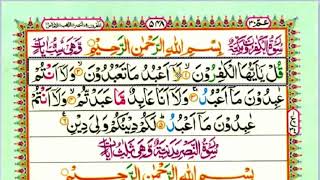 عم ٣٠
٥٤٨
سُوْرَةُ الْكٰفِرُوْنَ مَكِّيَّةٌ بِسْمِ اللّٰهِ الرَّحْمٰنِ الرَّحِيْمِ وَهِيَ سِتُّ اٰيَاتٍ
قُلْ يٰٓاَيُّهَا الْكٰفِرُوْنَ ۙ‏﴿١﴾ لَآ اَعْبُدُ مَا تَعْبُدُوْنَ ۙ‏﴿٢﴾ وَلَآ اَنْتُمْ
عٰبِدُوْنَ مَآ اَعْبُدُ ۚ‏﴿٣﴾ وَلَآ اَنَا عَابِدٌ مَّا عَبَدْتُّمْ ۙ‏﴿٤﴾ وَلَآ اَنْتُمْ
عٰبِدُوْنَ مَآ اَعْبُدُ ؕ‏﴿٥﴾ لَكُمْ دِيْنُكُمْ وَلِيَ دِيْنِ ﴿٦﴾
سُوْرَةُ النَّصْرِ مَدَنِيَّةٌ وَهِيَ ثَلٰثُ اٰيَاتٍ
بِسْمِ اللّٰهِ الرَّحْمٰنِ الرَّحِيْمِ